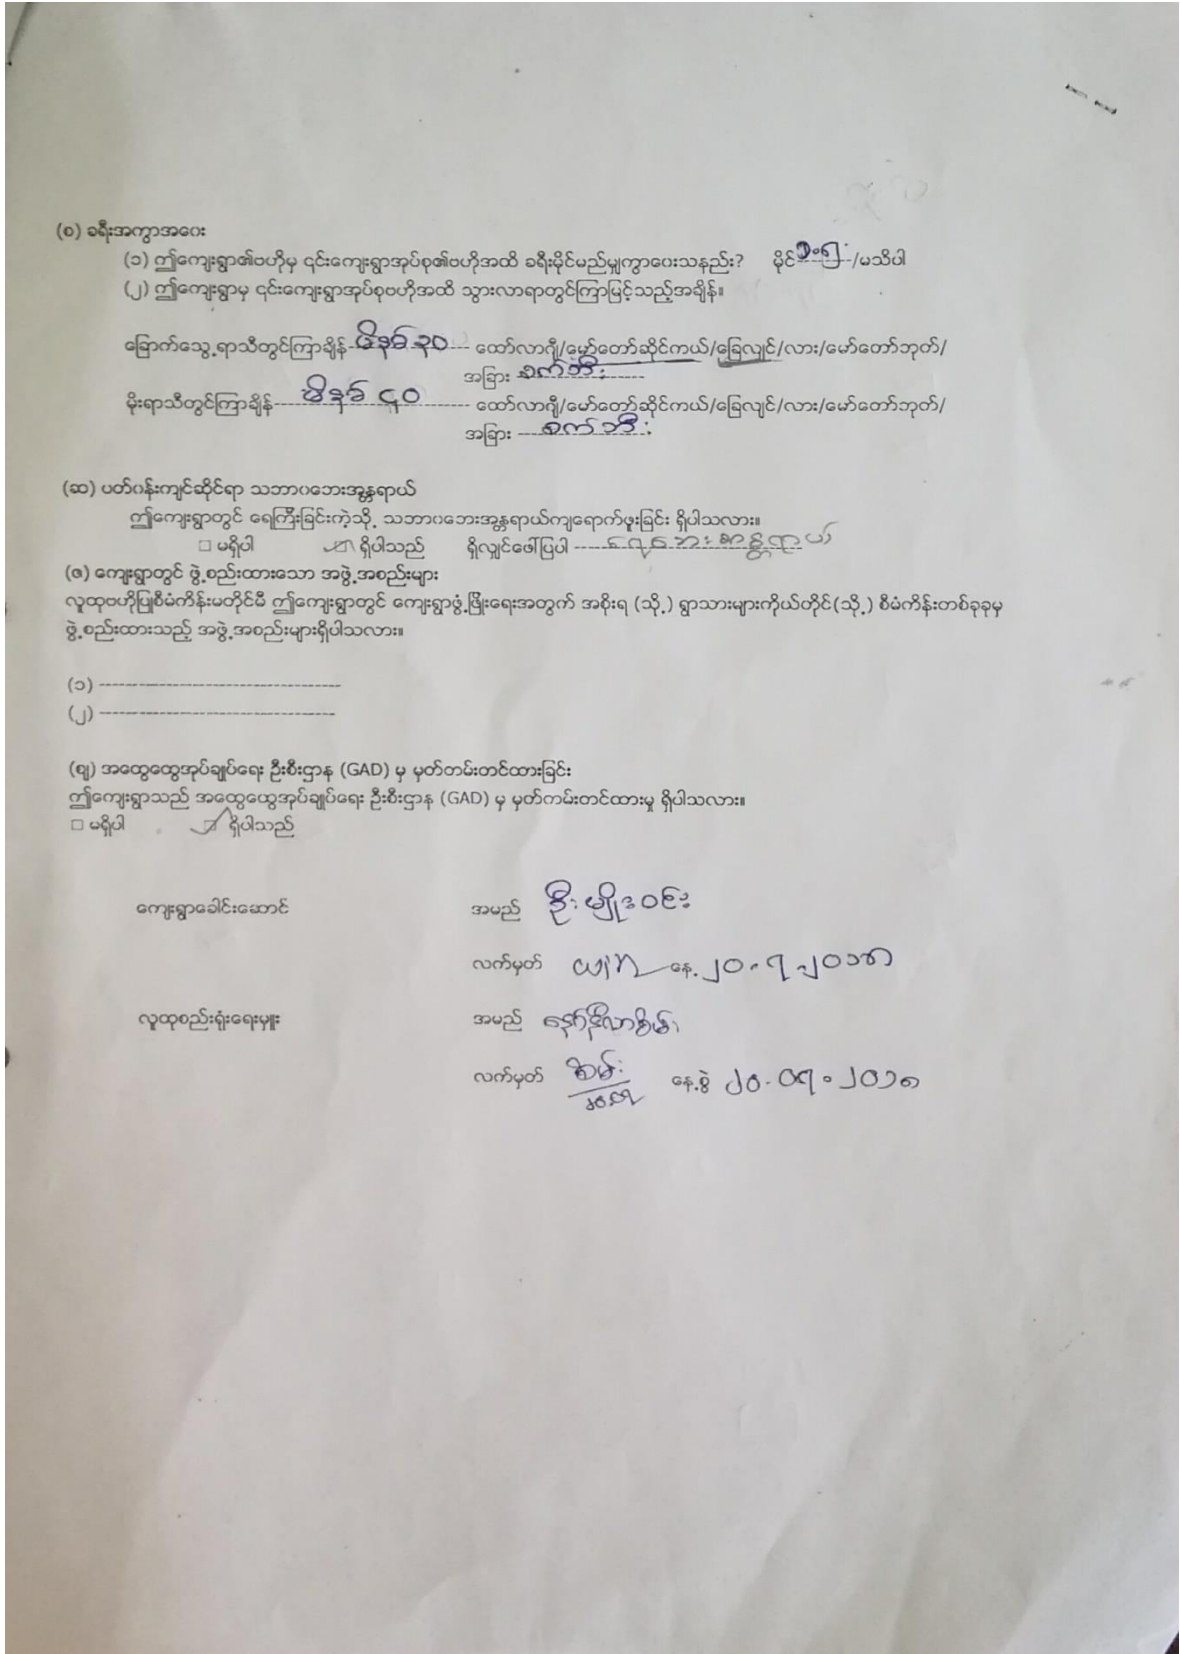 (စ) ခရီးအကွာအဝေး
(၁) ဤကျေးရွာ၏ဗဟိုမှ ၎င်းကျေးရွာအုပ်စု၏ဗဟိုအထိ ခရီးမိုင်မည်မျှကွာဝေးသနည်း? မိုင် ၁.၅ /မသိပါ
(၂) ဤကျေးရွာမှ ၎င်းကျေးရွာအုပ်စုဗဟိုအထိ သွားလာရာတွင်ကြာမြင့်သည့်အချိန်။
ခြောက်သွေ့ရာသီတွင်ကြာချိန် မိနစ် ၃၀ ထော်လာဂျီ/မော်တော်ဆိုင်ကယ်/ခြေလျင်/လား/မော်တော်ဘုတ်/
အခြား စက်ဘီး
မိုးရာသီတွင်ကြာချိန် မိနစ် ၄၀ ထော်လာဂျီ/မော်တော်ဆိုင်ကယ်/ခြေလျင်/လား/မော်တော်ဘုတ်/
အခြား စက်ဘီး
(ဆ) ပတ်ဝန်းကျင်ဆိုင်ရာ သဘာဝဘေးအန္တရာယ်
ဤကျေးရွာတွင် ရေကြီးခြင်းကဲ့သို့ သဘာဝဘေးအန္တရာယ်ကျရောက်ဖူးခြင်း ရှိပါသလား။
□ မရှိပါ ရှိပါသည် ရှိလျှင်ဖေါ်ပြပါ ရေဘေးအန္တရာယ်
(ဇ) ကျေးရွာတွင် ဖွဲ့စည်းထားသော အဖွဲ့အစည်းများ
လူထုဗဟိုပြုစီမံကိန်းမတိုင်မီ ဤကျေးရွာတွင် ကျေးရွာဖွံ့ဖြိုးရေးအတွက် အစိုးရ (သို့) ရွာသားများကိုယ်တိုင်(သို့) စီမံကိန်းတစ်ခုခုမှ
ဖွဲ့စည်းထားသည့် အဖွဲ့အစည်းများရှိပါသလား။
(၁)
(၂)
(ဈ) အထွေထွေအုပ်ချုပ်ရေး ဦးစီးဌာန (GAD) မှ မှတ်တမ်းတင်ထားခြင်း
ဤကျေးရွာသည် အထွေထွေအုပ်ချုပ်ရေး ဦးစီးဌာန (GAD) မှ မှတ်ကမ်းတင်ထားမှု ရှိပါသလား။
□ မရှိပါ ရှိပါသည်
ကျေးရွာခေါင်းဆောင် အမည် ဦးမျိုးဝင်း
လက်မှတ် win နေ့ ၂၀.၇.၂၀၁၈
လူထုစည်းရုံးရေးမှူး အမည်
လက်မှတ် နေ့စွဲ ၂၀.၀၇.၂၀၁၈